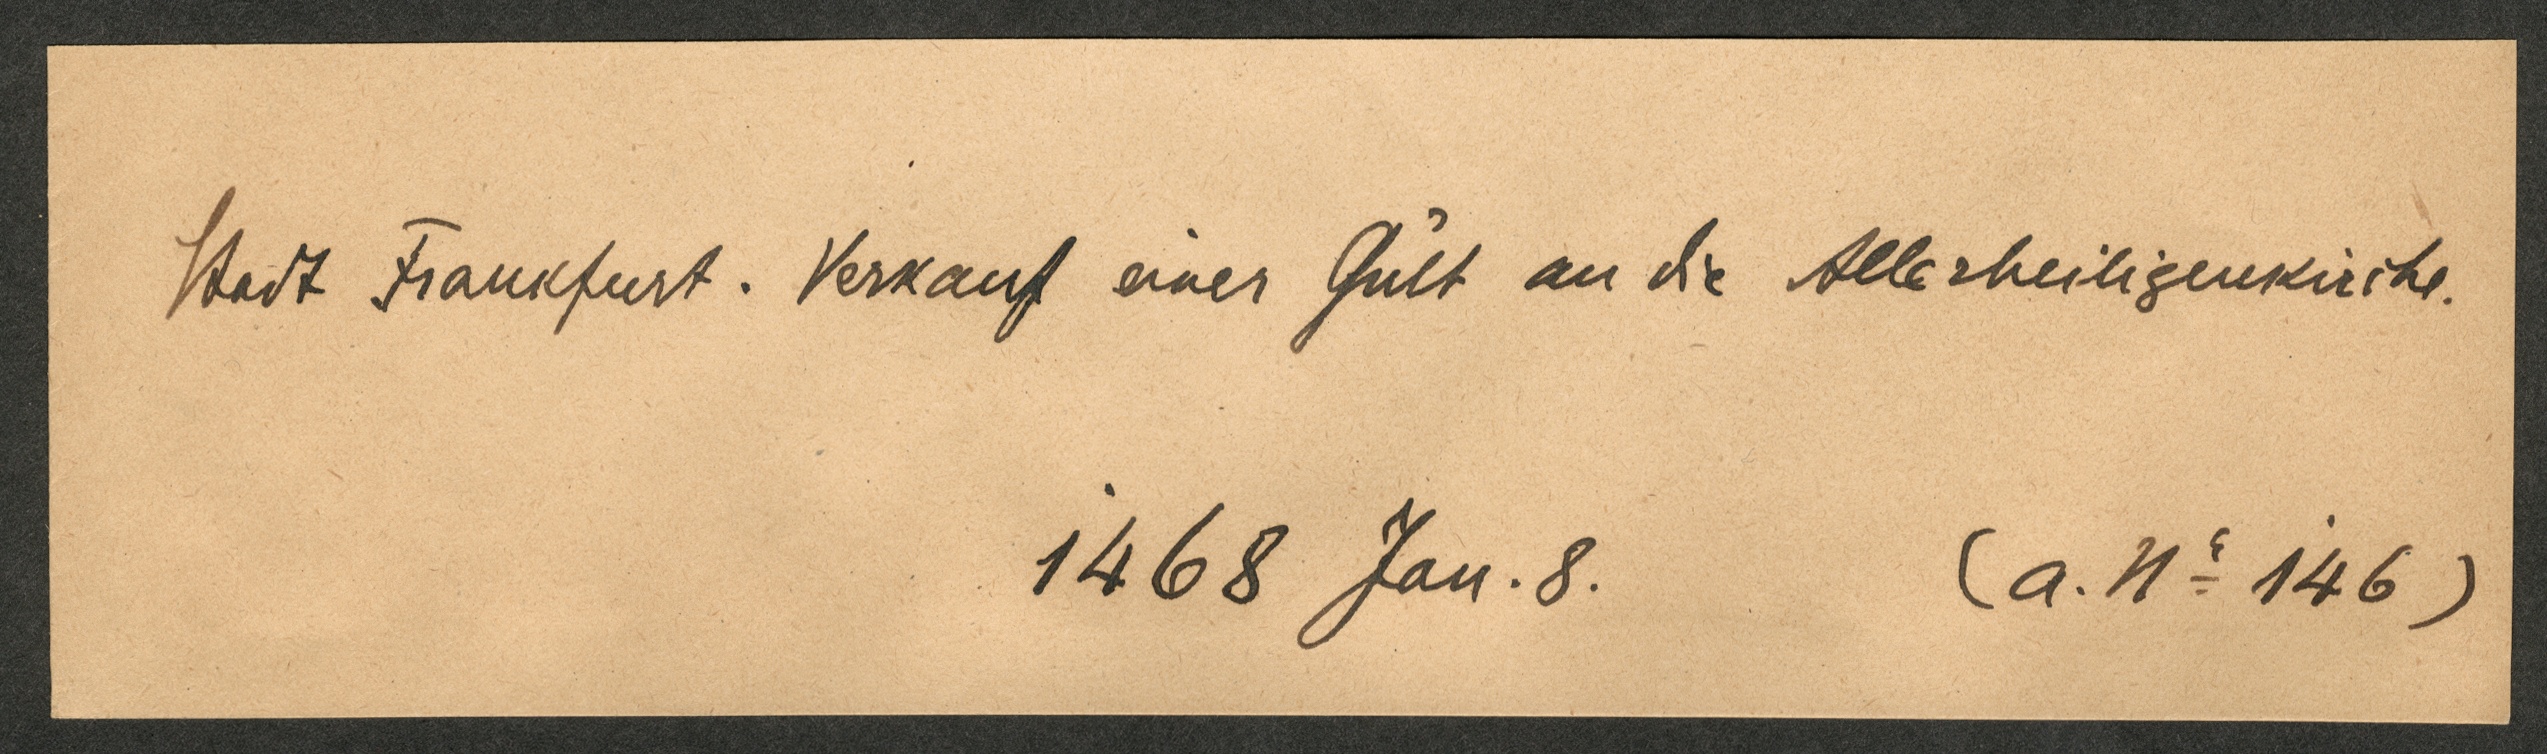 Stadt Frankfurt. Verkauf einer Gült an die Allerheiligenkirche.
1468 Jan. 8. (a. Nr 146)